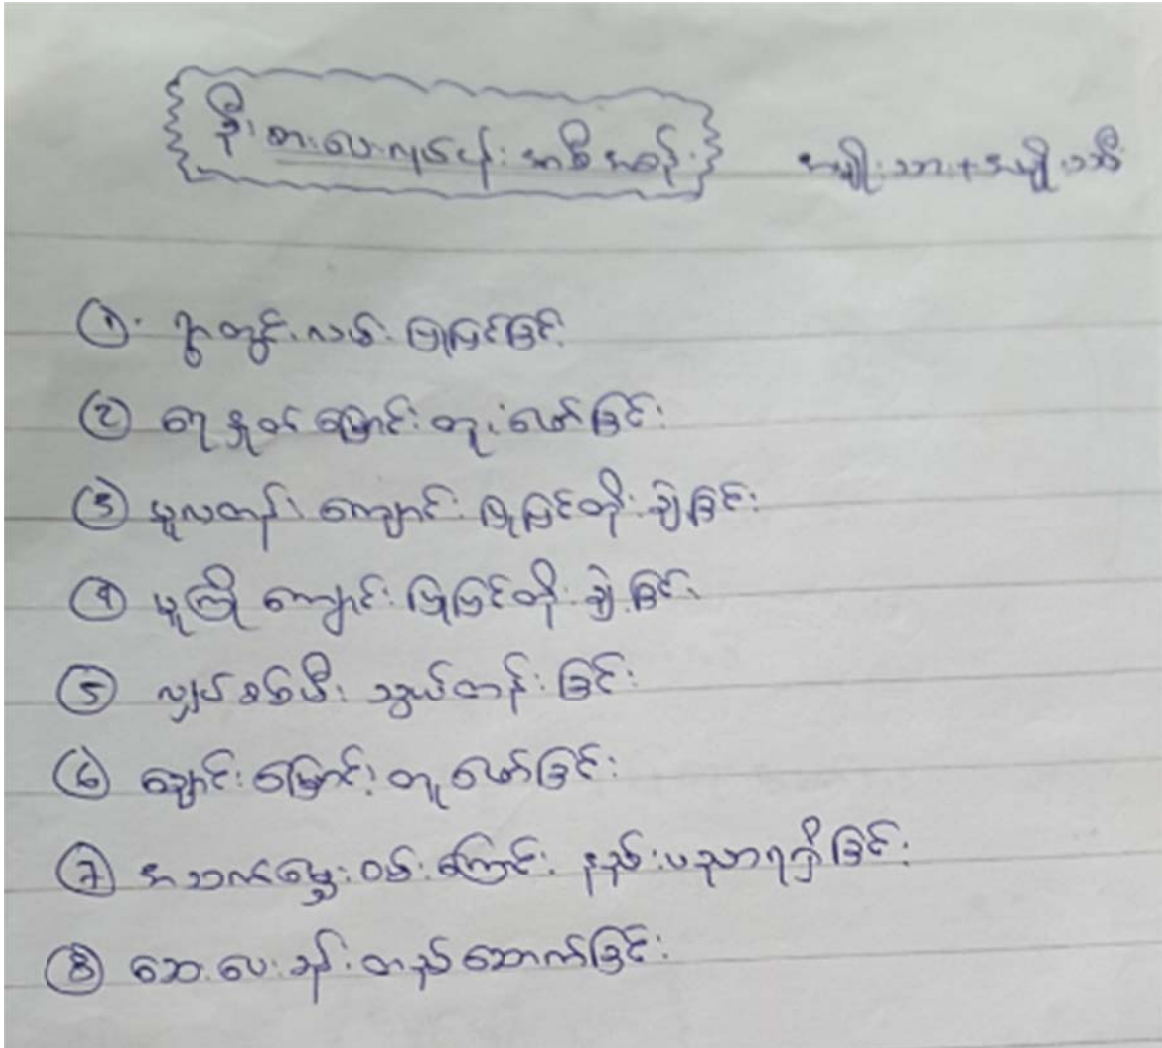 ဦးစားပေးလုပ်ငန်းအစီအစဉ် အမျိုးသား+အမျိုးသမီး
① ရွာတွင်းလမ်းပြုပြင်ခြင်း
② ရေနှုတ်မြောင်းတူးဖော်ခြင်း
③ မူလတန်းကျောင်းပြုပြင်တိုးချဲ့ခြင်း
④ မူကြိုကျောင်းပြုပြင်တိုးချဲ့ခြင်း
⑤ လျှပ်စစ်မီးသွယ်တန်းခြင်း
⑥ ချောင်းမြောင်းတူးဖော်ခြင်း
⑦ အသက်မွေးဝမ်းကြောင်းနည်းပညာရရှိခြင်း
⑧ ဆေးပေးခန်းတည်ဆောက်ခြင်း